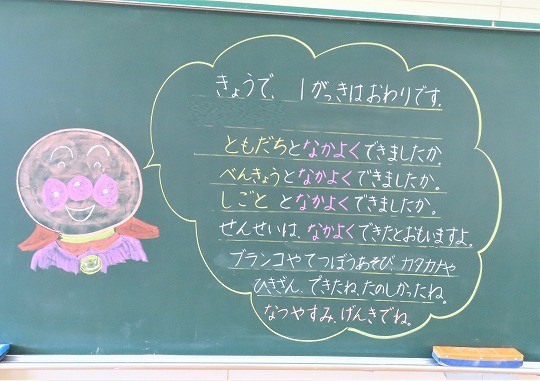 きょうで、1がっきはおわりです。
ともだちとなかよくできましたか。
べんきょうとなかよくできましたか。
しごと となかよくできましたか。
せんせいは、なかよくできたとおもいますよ。
ブランコやてつぼうあそび、カタカナや
ひきざん、できたね、たのしかったね。
なつやすみ、げんきでね。